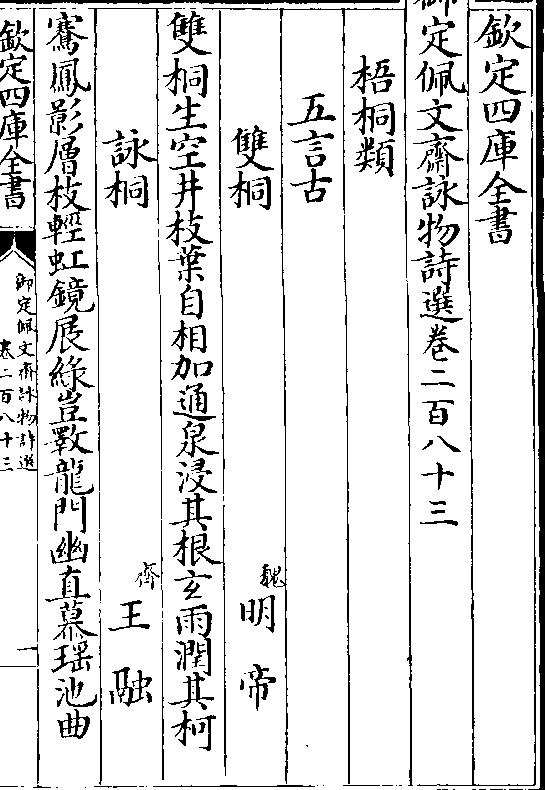 欽定四庫全書
御定佩文齋詠物詩選卷二百八十三
梧桐類
五言古
雙桐 魏 明帝
雙桐生空井枝葉自相加通泉浸其根玄雨潤其柯
詠桐 齊 王融
騫鳳影層枝輕虹鏡展綠豈斁龍門幽直慕瑶池曲
欽定四庫全書
御定佩文齋詠物詩選
卷二百八十三
一